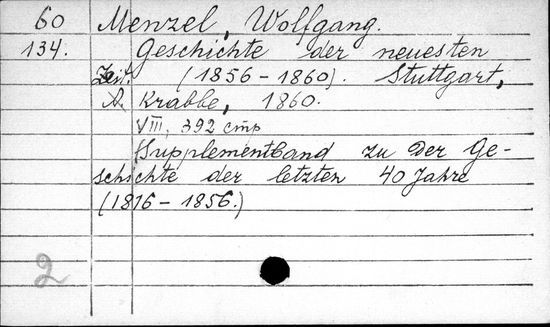 60 Menzel, Wolfgang.
134. Geschichte der neuesten
Zeit. (1856-1860). Stuttgart,
A. Krabbe, 1860.
VIII, 392 стр
(Supplementband zu Der Ge-
schichte der letzten 40 Jahre
(1816-1856.)
2